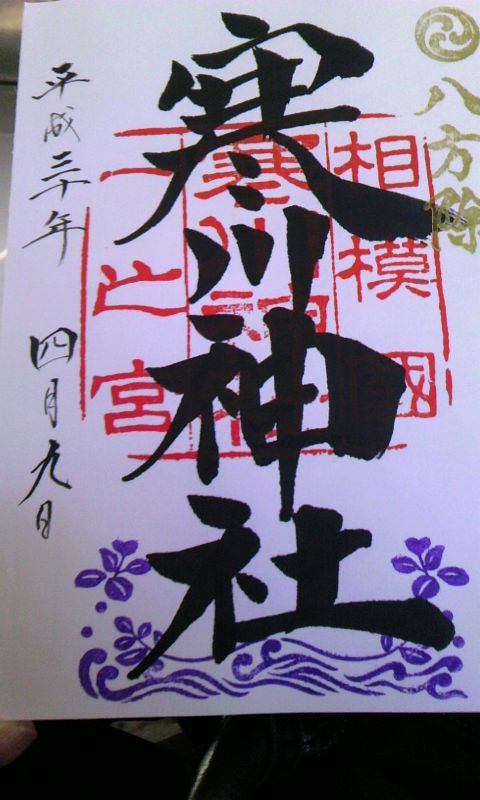 八方除
相模國
寒川神社
一之宮
寒川神社
平成三十年 四月九日